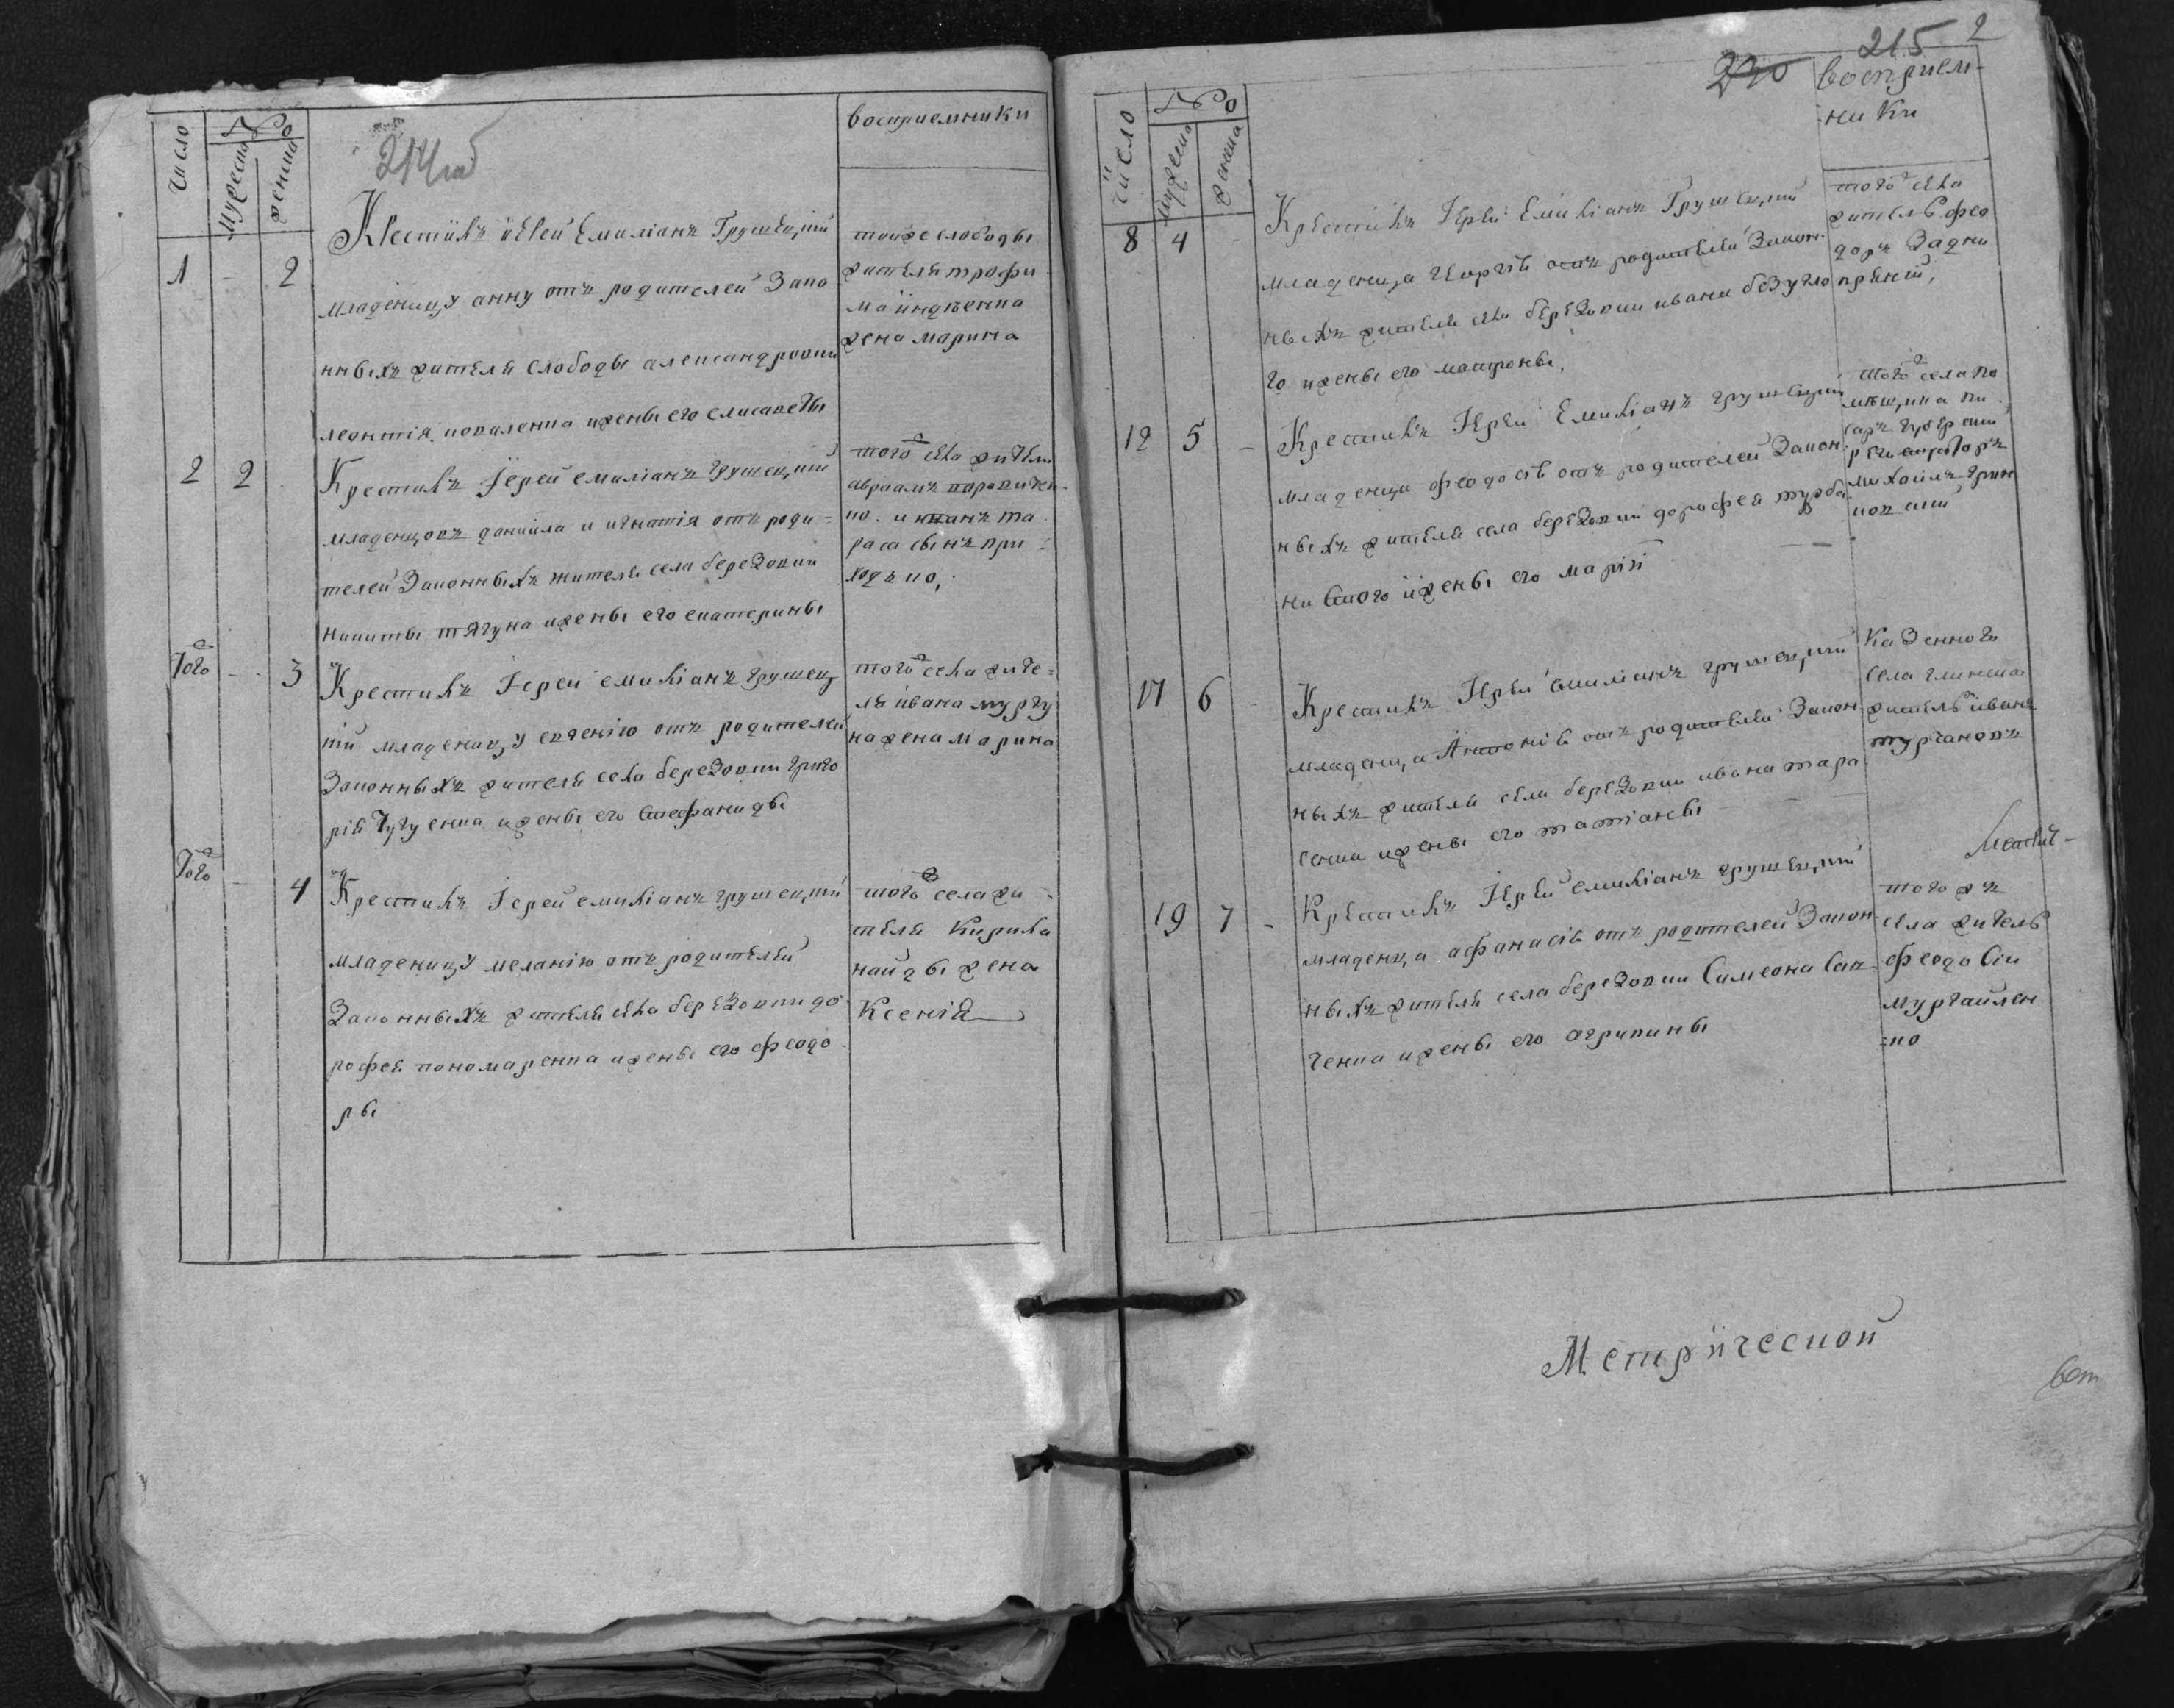 214 об
число
№
мужеска
женска
восприемники
1 - 2
Крестилъ іерей Емиліанъ Грушецкій
младеницу анну отъ родителей Зако
нныхъ жителя слободы александровки
леонтія коваленка и жены его елисаветы
тойже слободы
жителя трофи
ма
жена марина
2 2
Крестилъ Іерей емиліанъ грушецкій
младенцовъ даніила и игнатія отъ роди=
телей Законныхъ жителя села березовки
никиты тягуна и жены его екатерины
того села жители
авраамъ
но. и та
раса сынъ при
ходко,
того - 3
Крестилъ Іерей емиліанъ грушец
кій младеницу евгенію отъ родителей
Законныхъ жителя села березовки григо
рія Чугуенка и жены его Стефаниды
того села жите=
ля ивана мургу
на жена марина
того - 4
Крестилъ Іерей емиліанъ грушецкій
младеницу меланію отъ родителей
Законныхъ жителя села березовки до
рофея пономаренка и жены его феодо
ры
того села жи
теля Кирила
найды жена
Ксенія
230 215 2
число
№
мужеска
женска
восприем-
ники
8 4 -
Крестилъ Іерей Емиліанъ Грушецкій
младенца Георгія отъ родителей Закон
ныхъ жителя села березовки ивана безугло
го и жены его матроны,
того села
житель фео
доръ Задни
пряный,
12 5 -
Крестилъ Іерей Емиліанъ грушецкій
младенца феодосія отъ родителей Закон
ныхъ жителя села березовки дорофея турба
ни и жены его маріи
того села по
мещика пи
сарь губернскій
регистраторъ
михаилъ
17 6 -
Крестилъ Іерей емиліанъ грушецкій
младенца Антонія отъ родителей Закон
ныхъ жителя села березовки ивана тара
сенка и жены его татіаны
Казенного
села глинска
житель иванъ
турчановъ
19 7 -
Крестилъ Іерей емиліанъ грушецкій
младенца афанасія отъ родителей Закон
ныхъ жителя села березовки Симеона Сав
ченка и жены его агрипины
тогожъ
села житель
феодосій
мургайлен
=ко
Метрической